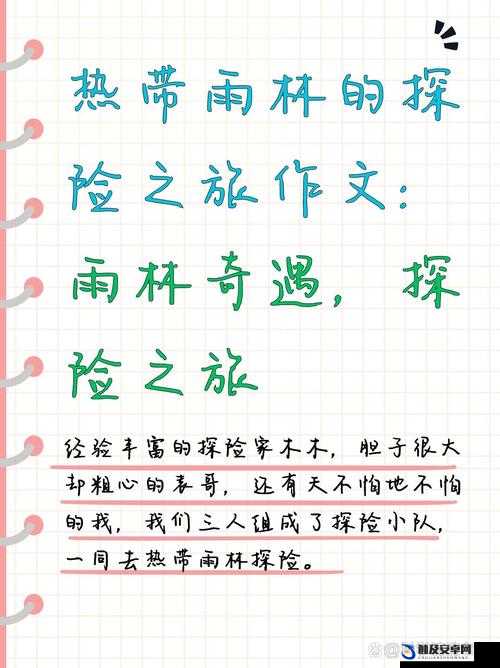 热带雨林的探
险之旅作文:
雨林奇遇,探
险之旅
经验丰富的探险家木木,胆子很大
却粗心的表哥,还有天不怕地不怕
的我,我们三人组成了探险小队,
一同去热带雨林探险。
触及安卓网